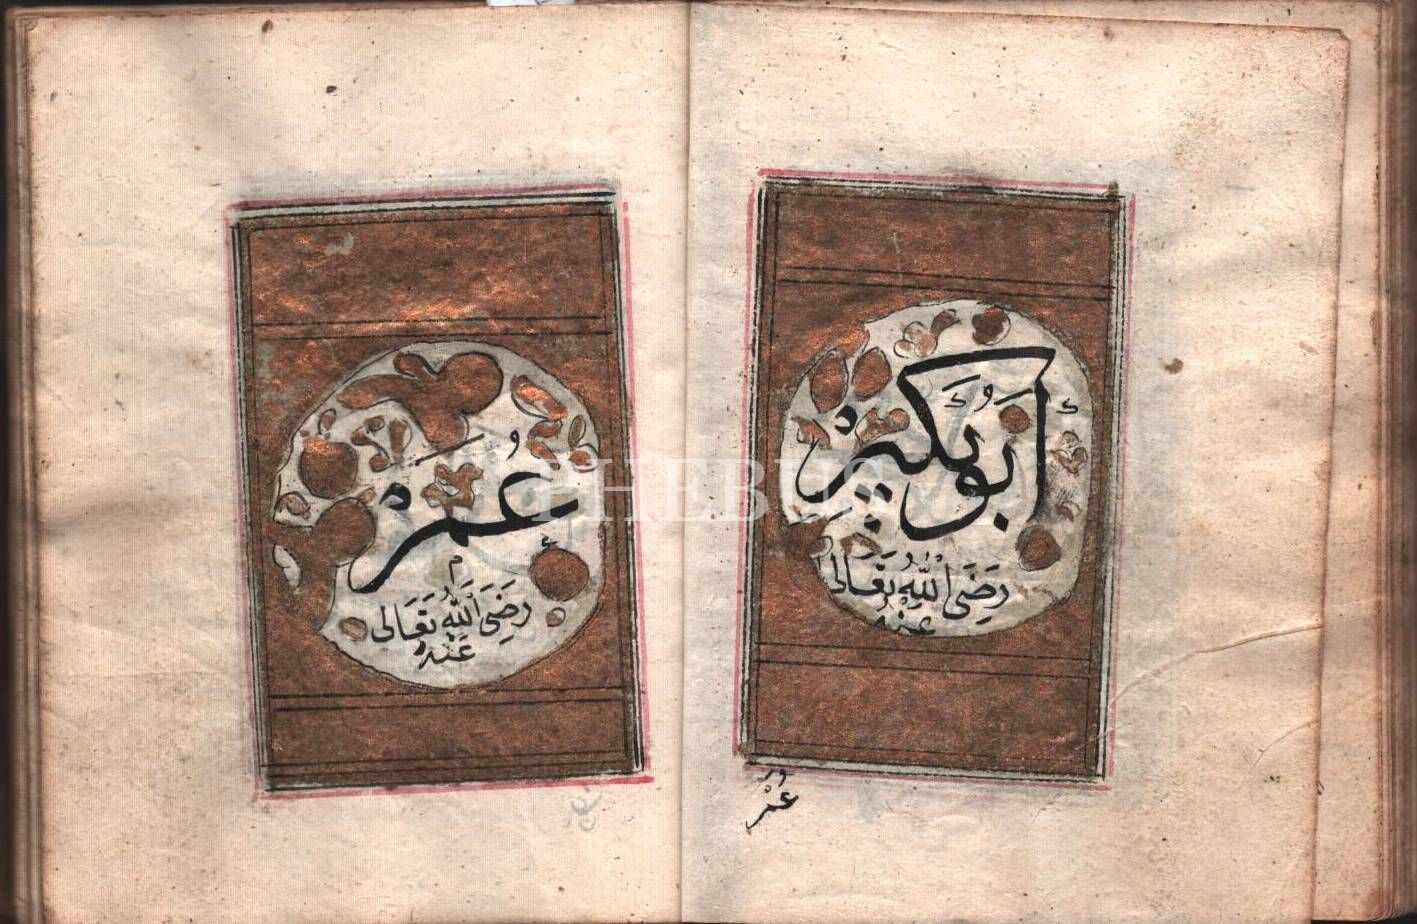 أَبُو بَكْرْ
رَضِىَ اللّٰهُ تَعَالٰى
عَنْهُ
عُمَرْ
عُمَرْ
رَضِىَ اللّٰهُ تَعَالٰى
عَنْهُ
PHEBUS